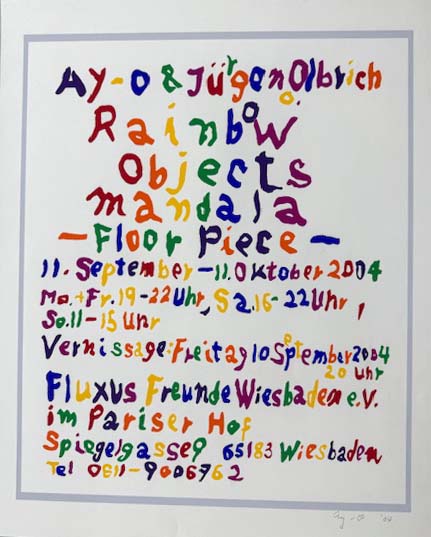 Ay-o & Jürgen Olbrich
Rainbow
Objects
mandala
- Floor Piece -
11. September - 11. Oktober 2004
Mo.+Fr. 19-22 Uhr, Sa. 16-22 Uhr,
So. 11-15 Uhr
Vernissage: Freitag 10 September 2004
20 Uhr
Fluxus Freunde Wiesbaden e.V.
im Pariser Hof
Spiegelgasse 9 65183 Wiesbaden
Tel 0611-9006762
Ay-O '04